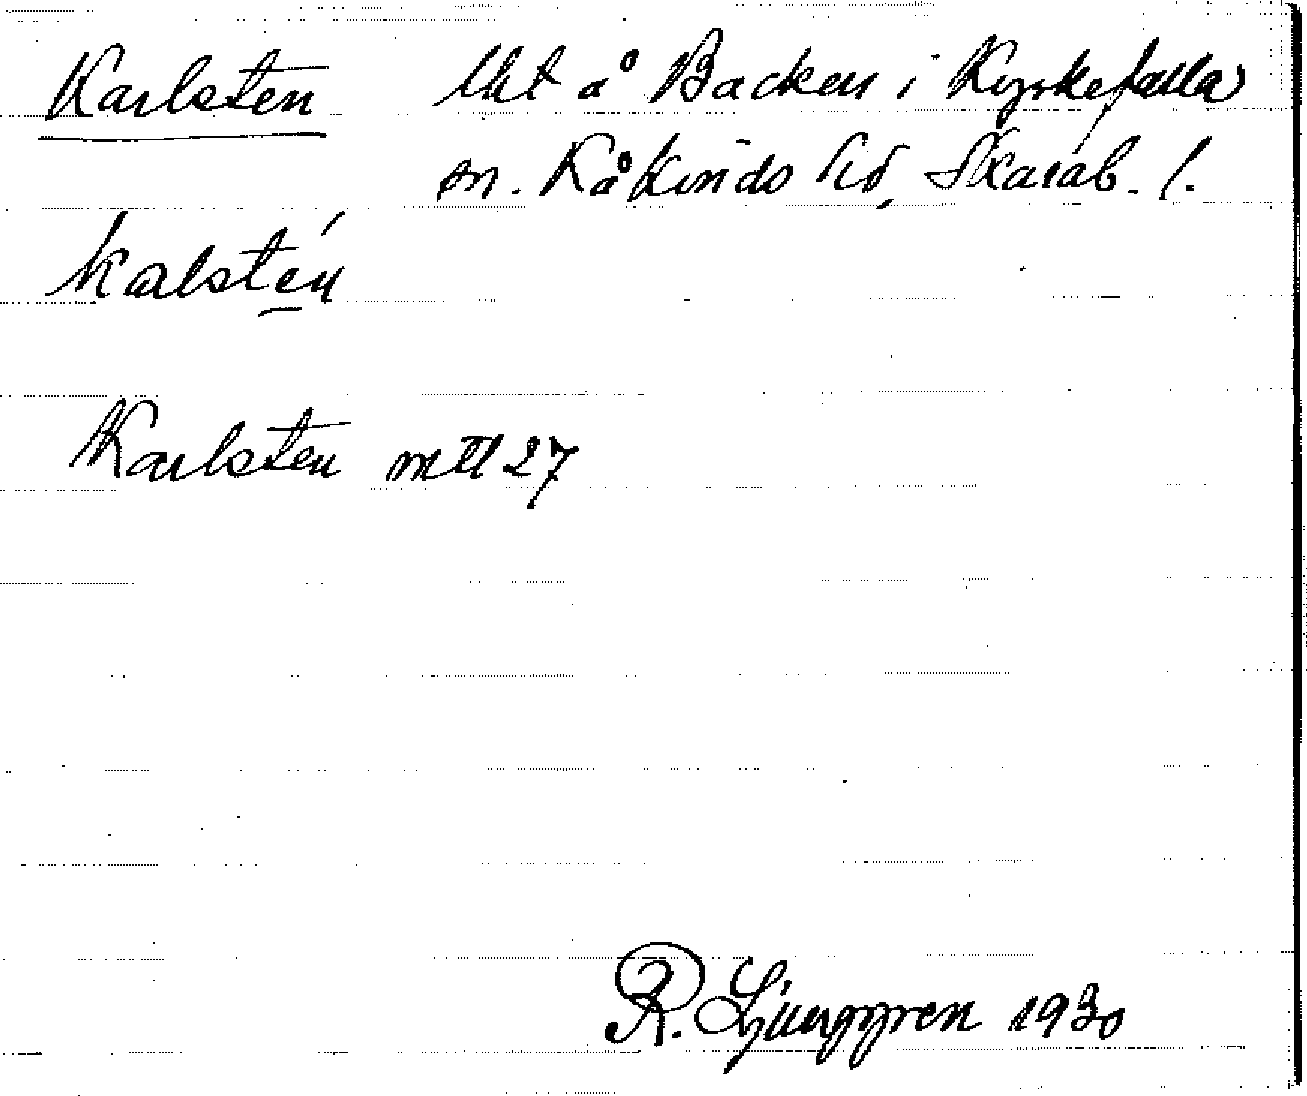 Karlsten Uht å Backen i Kyrkefalla
sn. Kåkinds hd, Skarab. l.
kaɹlsten
Karlsten mtl 27
R. Ljunggren 1930